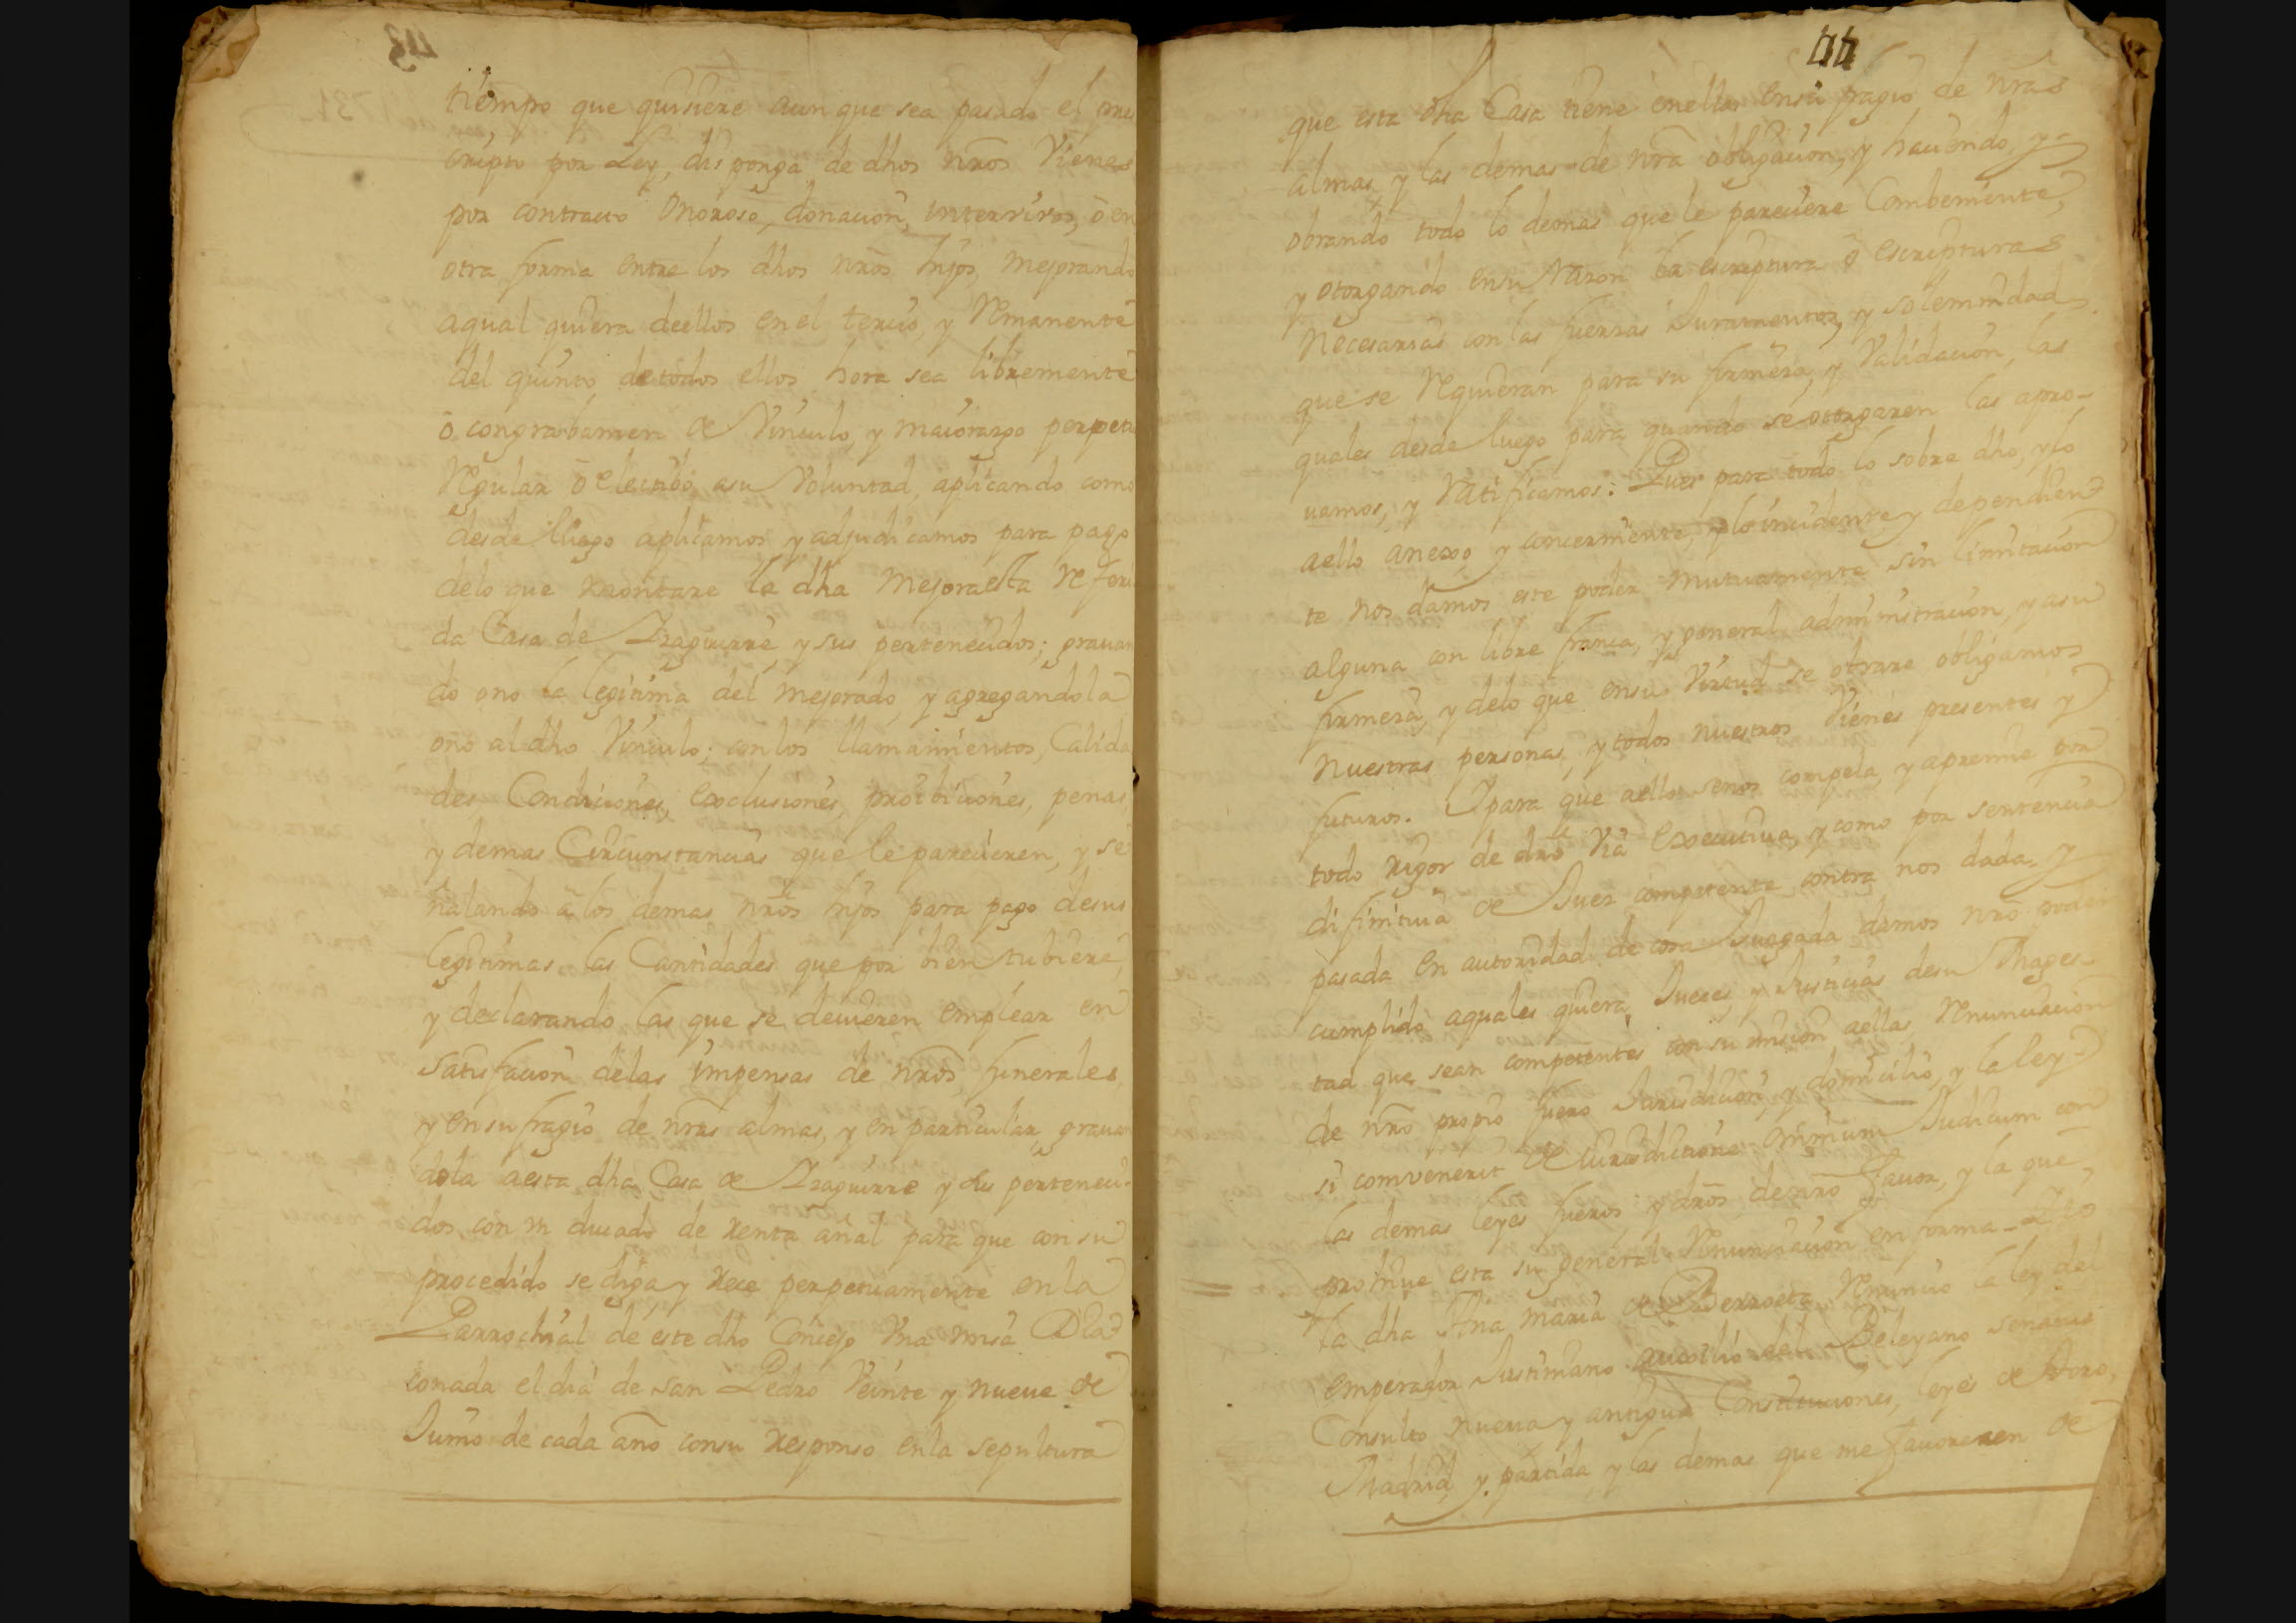 tiempo que quisiere aunque sea pasado el pres
cripto por Ley, disponga de dhos nros Vienes
por contracto Onoroso, donacion, intervivos, ò en
otra forma entre los dhos nros hijos, mejorando
aqual quiera deellos en el tercio, y Remanente
del quinto, detodos ellos, hora sea libremente
ò congrabamen de Vinculo, y maiorazgo perpetu
Regular ò electibo asu Voluntad, aplicando como
desde luego aplicamos y adjudicamos para pago
delo que montare la dha Mejora esta Referi
da Casa de Izaguirre y sus pertenecidos; gravan
do ono la legitima del mejorado, y agregandola
ono al dho Vinculo; con los llamamientos, Calida
des, Condiciones, exclusiones, proibiciones, penas,
y demas Circunstancias que le parecieren, y se
ñalando à los demas nros hijos para pago desus
legitimas las Cantidades que por bien tubiere,
y declarando las que se devieren emplear en
satisfacion delas impensas de nros funerales
y en sufragio de nras almas, y en particular, grauan
dola aesta dha Casa de Izaguirre y sus perteneci-
dos, con vn ducado de renta anal para que con su
procedido se diga y rece perpetuamente en la
Parrochial de este dho Concejo Vna misa
conada el dia de san Pedro Veinte y nueue de
Junio de cada año consu responso en la sepultura
44
que esta dha Casa tiene enella ensu fragio de nras
almas, y las demas de nra obligacion, y haciendo, y
obrando todo lo demas que le pareciere Combeniente,
y otorgando ensu Razon la escriptura ò escripturas
Necesarias con las fuerzas Juramentos, y solemnidades
que se Requieran para su firmeza, y Validacion, las
quales desde luego para quando se otorgaren las apro-
uamos, y Ratificamos: Pues para todo lo sobre dho, y lo
aello anexo, y concerniente, y lo incidente y dependien-
te nos damos este poder mutuamente sin limitacion
alguna con libre franca, y general administracion, y asu
firmeza, y delo que ensu Virtud se obrare obligamos
nuestras personas, y todos nuestros Vienes presentes y
futuros. Ypara que aello senos compela, y apremie por
todo rigor de dro Via executiua, y como por sentencia
difinitiua de Juez competente contra nos dada, y
pasada en autoridad de cosa Juzgada damos nro poder
cumplido aquales quiera Jueces y Justicias desu Mages-
tad que sean competentes con su mision aellas, Renunciacion
de nro propio fuero Jurisdicion, y domicilio, y la ley
si comvenerit de iurisdictione omnium Judicum con
las demas leyes fueros y dros de nro fauor, y la que
prohiue esta su general Renunciacion en forma - Y yo
la dha Ana Maria de Berroeta Renuncio la ley del
emperador Justiniano auxilio del Beleyano senatus
Consulto nueua y antigua Constituciones, leyes de toro,
Madrid, y partida, y las demas que me fauorecen de